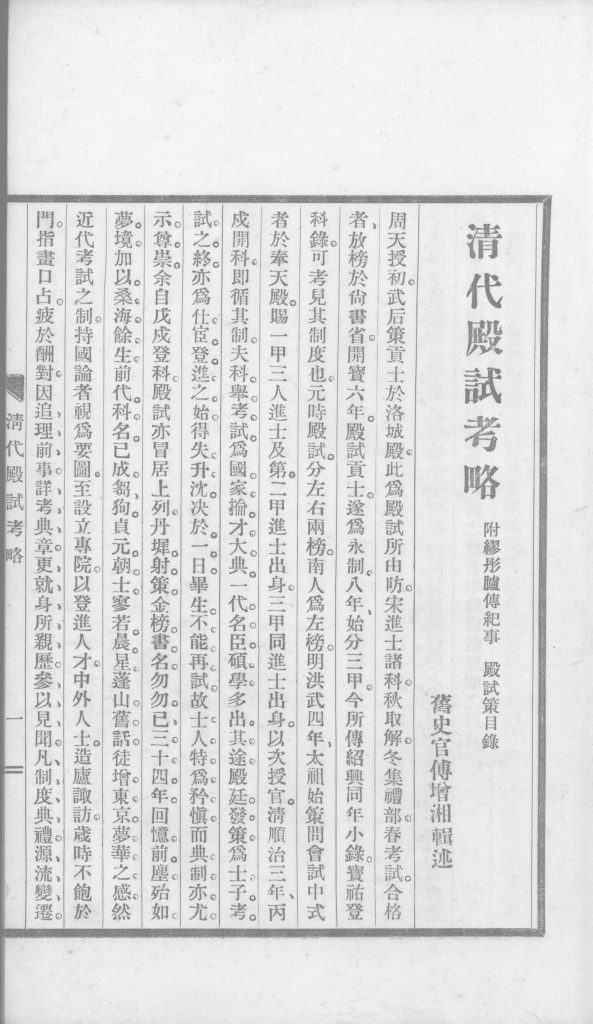 清代殿試考略
附繆彤臚傳紀事　殿試策目錄
舊史官傅增湘輯述
周天授初。武后策貢士於洛城殿。此爲殿試所由昉。宋進士諸科。秋取解。冬集禮部。春考試。合格
者、放榜於尙書省。開寶六年。殿試貢士。遂爲永制。八年、始分三甲。今所傳紹興同年小錄。寶祐登
科錄。可考見其制度也。元時殿試。分左右兩榜。南人爲左榜。明洪武四年、太祖始策問會試中式
者於奉天殿。賜一甲三人進士及第。二甲進士出身。三甲同進士出身。以次授官。清順治三年、丙
戌開科。卽循其制。夫科舉考試。爲國家掄才大典。一代名臣碩學。多出其途。殿廷發策。爲士子考
試之終。亦爲仕宦登進之始。得失升沈。决於一日。畢生不能再試。故士人特爲矜愼。而典制亦尤
示尊崇。余自戊戌登科。殿試亦冒居上列。丹墀射策。金榜書名。勿勿已三十四年。回憶前塵。殆如
夢境。加以桑海餘生。前代科名。已成芻狗。貞元朝士。寥若晨星。蓬山舊話。徒增東京夢華之感。然
近代考試之制。持國論者視爲要圖。至設立專院。以登進人才。中外人士。造廬諏訪。歲時不飽。於
門指畫口占。疲於酬對。因追理前事。詳考典章。更就身所親歷。參以見聞。凡制度典禮。源流變遷。
清代殿試考略
一